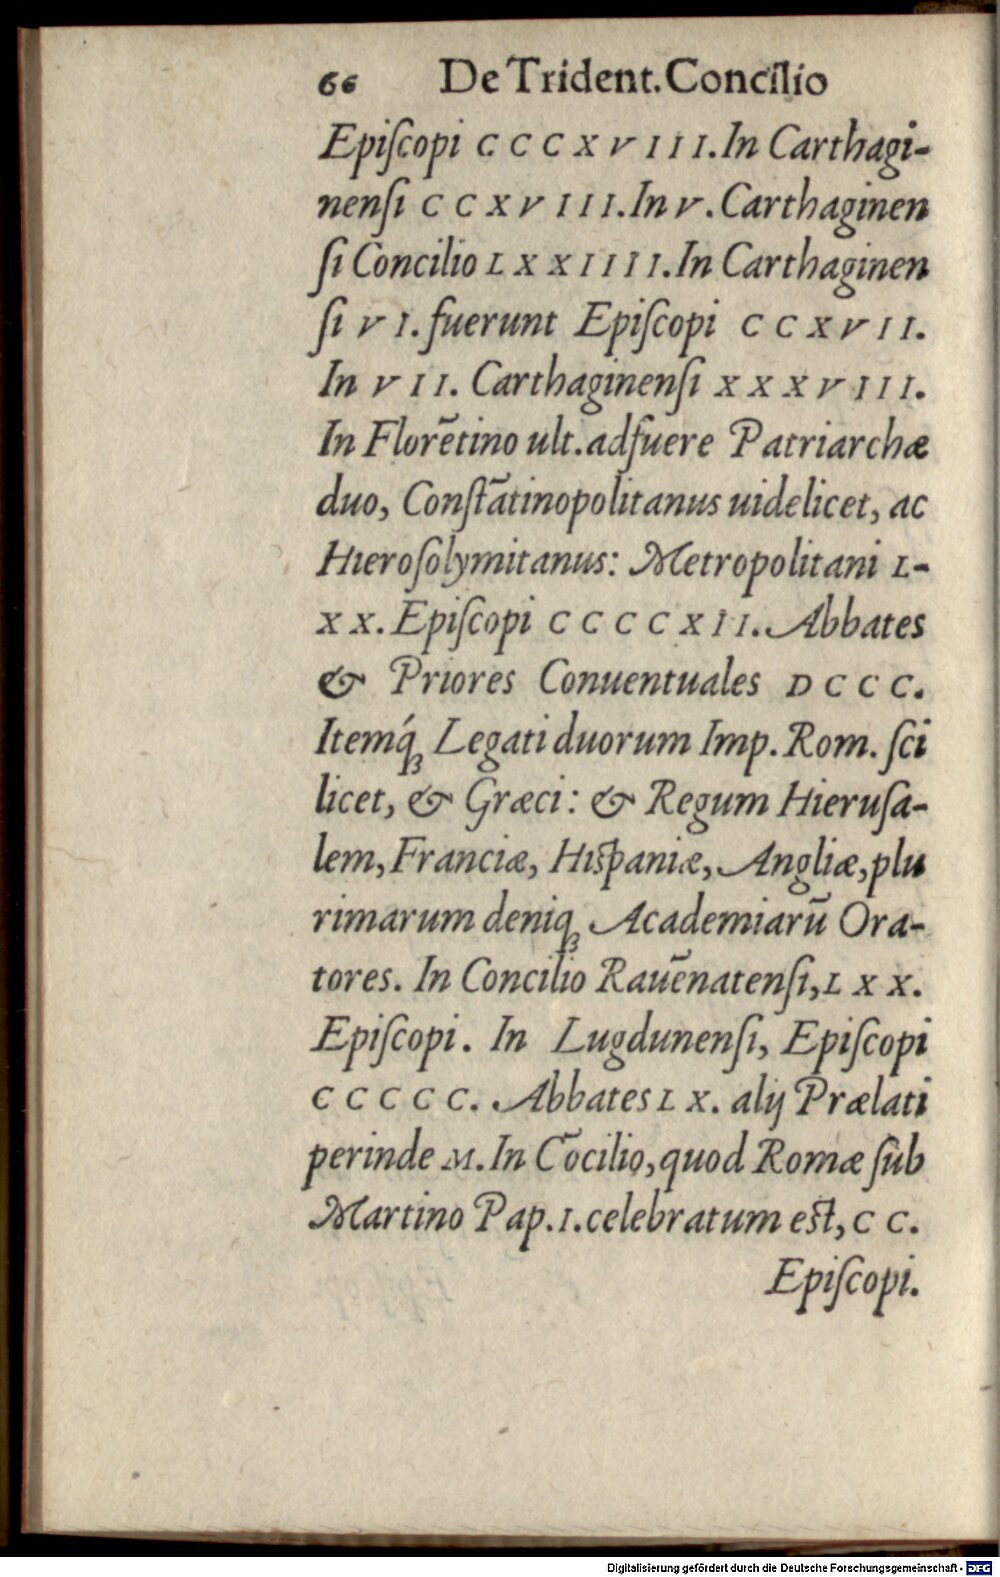 66 De Trident. Concilio
Epiſcopi CCCXVIII. In Carthagi-
nenſi CCXVIII. In V. Carthaginen
ſi Concilio LXXIIII. In Carthaginen
ſi VI. fuerunt Epiſcopi CCXVII.
In VII. Carthaginenſi XXXVIII.
In Florẽtino ult. adfuere Patriarchæ
duo, Conſtãtinopolitanus uidelicet, ac
Hieroſolymitanus: Metropolitani L-
XX. Epiſcopi CCCCXII. Abbates
& Priores Conuentuales DCCC.
Itemq́ꝫ Legati duorum Imp. Rom. ſci
licet, & Græci: & Regum Hieruſa-
lem, Franciæ, Hiſpaniæ, Angliæ, plu
rimarum deniqꝫ Academiarũ Ora-
tores. In Concilio Rauẽnatenſi, LXX.
Epiſcopi. In Lugdunenſi, Epiſcopi
CCCCC. Abbates LX. alij Prælati
perinde M. In Cõcilio, quod Romæ ſub
Martino Pap. I. celebratum eſt, CC.
Epiſcopi.
Digitalisierung gefördert durch die Deutsche Forschungsgemeinschaft - DFG